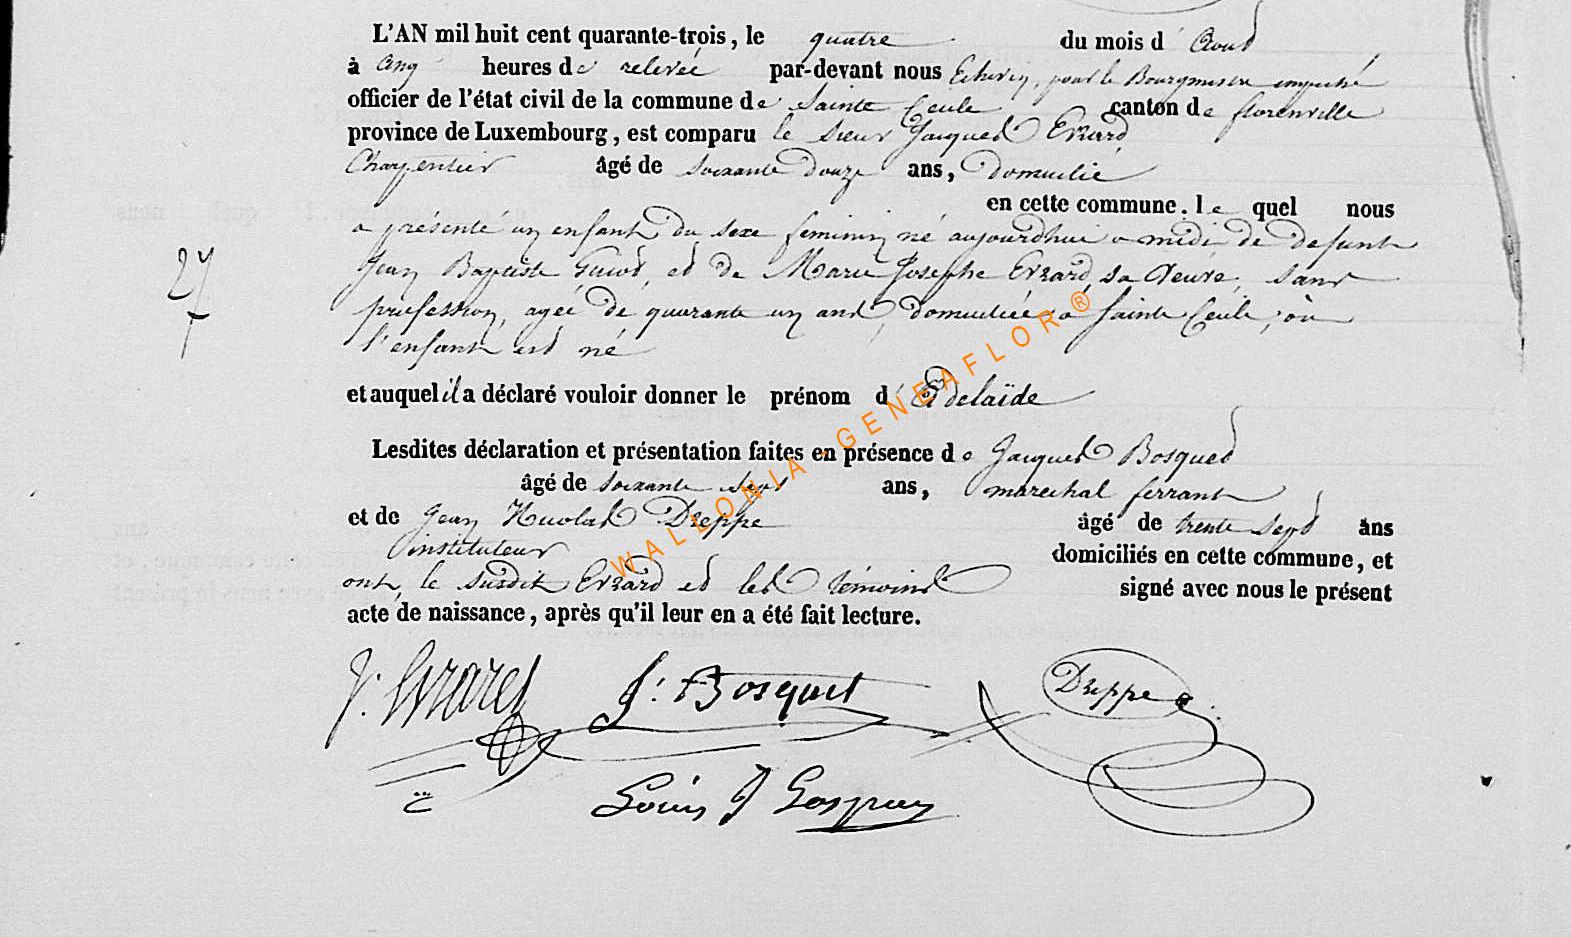 L'AN mil huit cent quarante-trois, le quatre du mois d'Aout
à cinq heures de relevée par-devant nous Echevin, pour le Bourgmestre empeché
officier de l'état civil de la commune de Sainte Cecile canton de florenville
province de Luxembourg, est comparu le sieur Jacques Evrard
Charpentier âgé de soixante douze ans, domicilié
en cette commune. le quel nous
a présenté un enfant du sexe feminin né aujourdhui a midi de defunt
Jean Baptiste et de Marie Josephe Evrard, sa veuve, sans
profession, agée de quarante un ans, domiciliée a Sainte Cecile, où
l'enfant est né
27
et auquel il a déclaré vouloir donner le prénom d'Adelaïde
Lesdites déclaration et présentation faites en présence de Jacques Bosquet
âgé de soixante sept ans, marechal ferrant
et de Jean Nicolas Dreppe âgé de trente sept ans
instituteur domiciliés en cette commune, et
ont, le susdit Evrard et les témoins signé avec nous le présent
acte de naissance, après qu'il leur en a été fait lecture.
J. Evrard J. Bosquet Dreppe
Louis J
WALLONIA-GENEAFLOR®